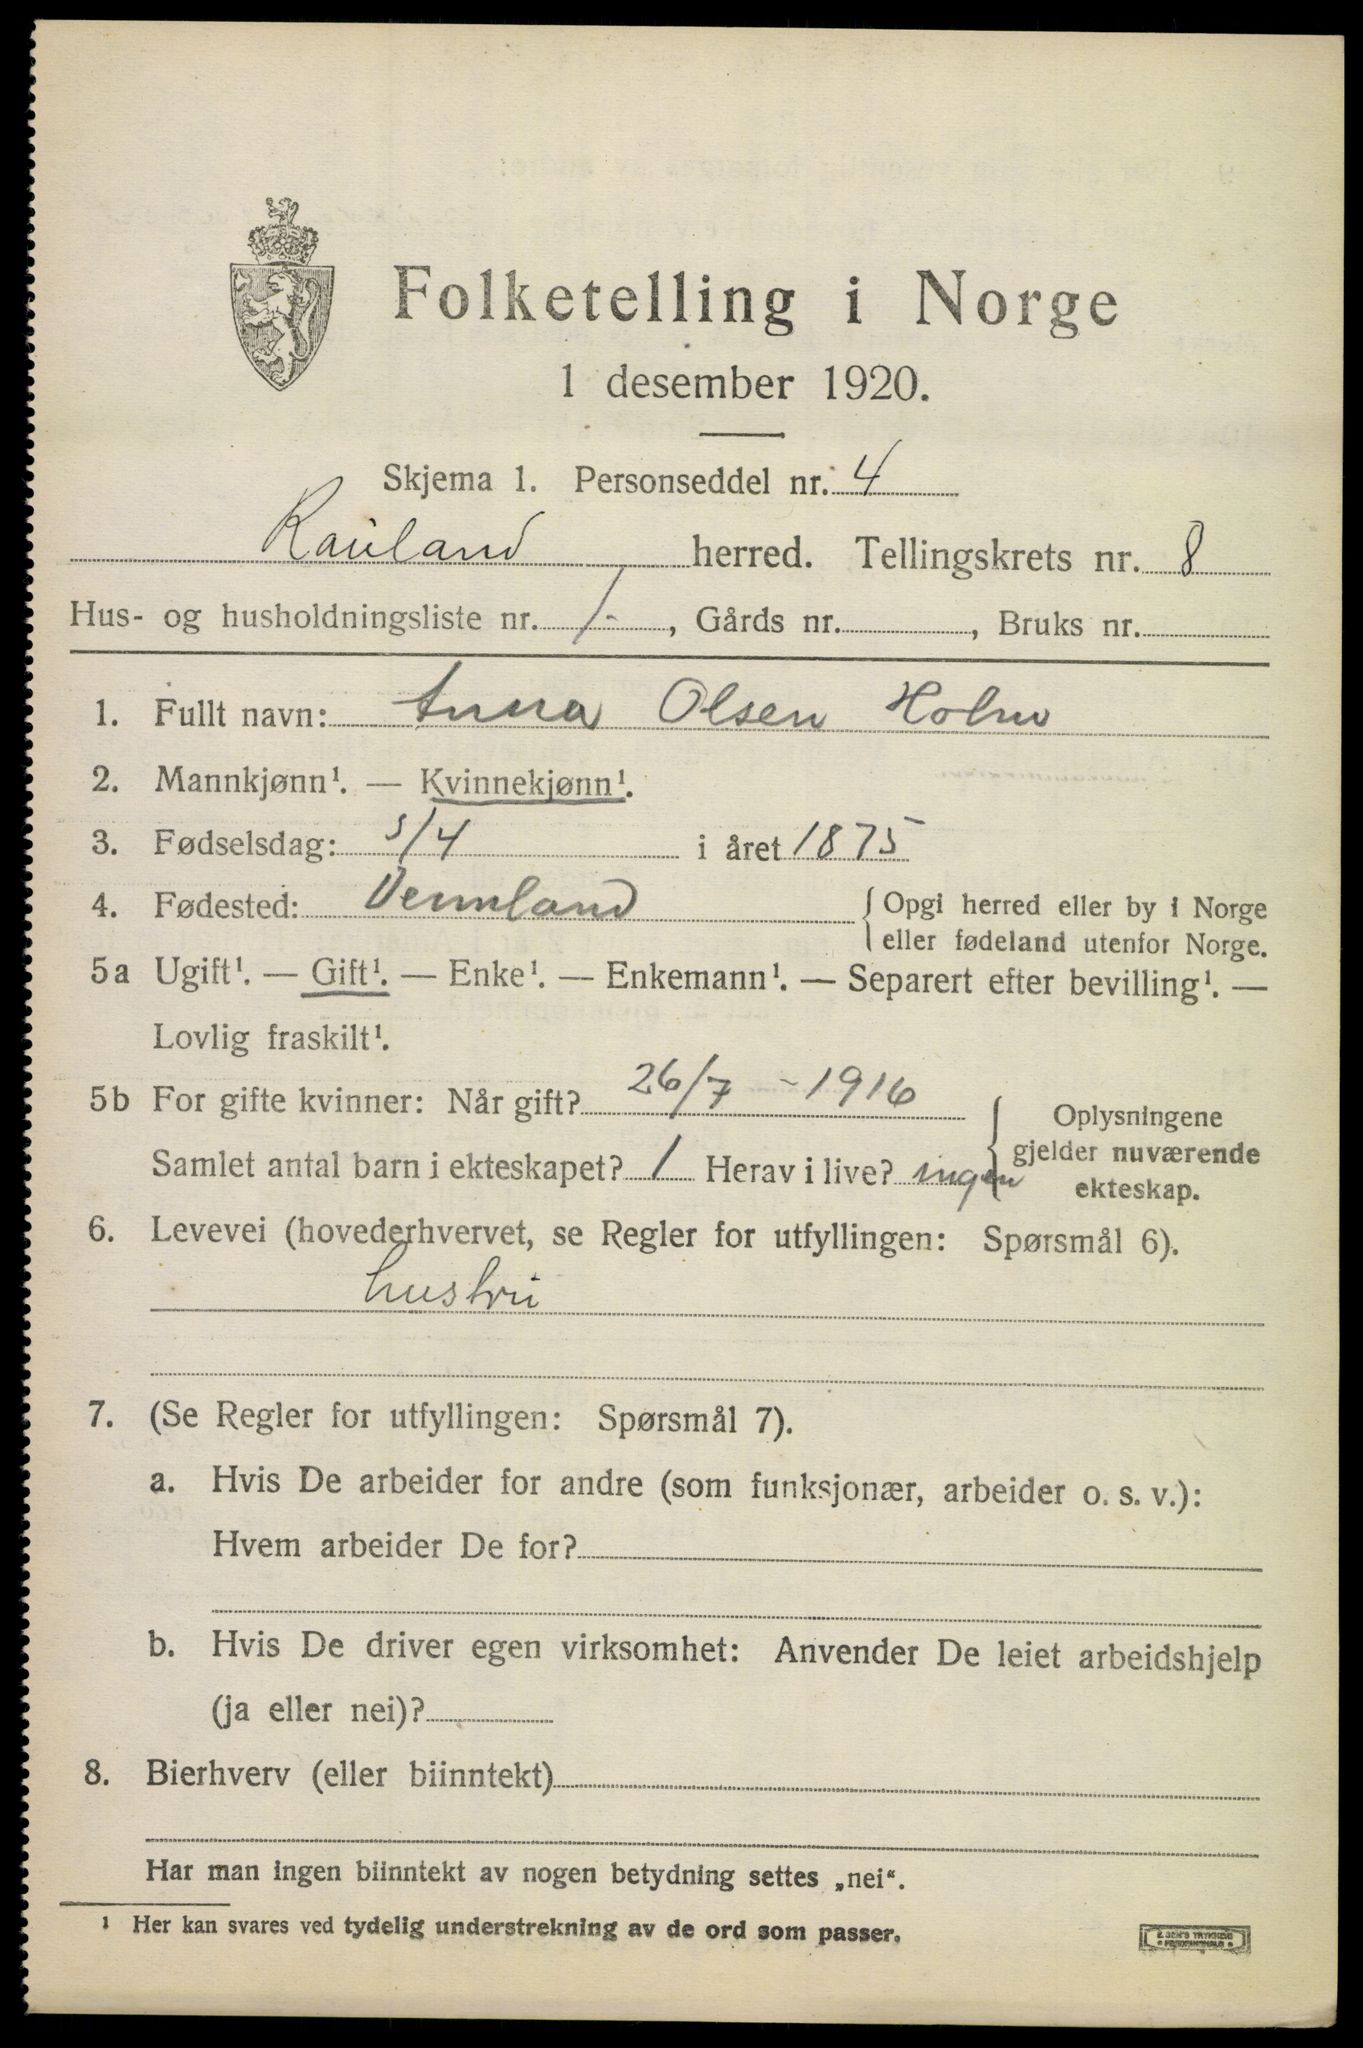 Folketelling i Norge
1 desember 1920.
Skjema 1. Personseddel nr. 4
Rauland herred. Tellingskrets nr. 8
Hus- og husholdningsliste nr. 1-, Gårds nr. , Bruks nr.
1. Fullt navn: Anna Olsen Holm
2. Mannkjønn¹. — Kvinnekjønn¹.
3. Fødselsdag: 3/4 i året 1875
4. Fødested: Vermland { Opgi herred eller by i Norge
eller fødeland utenfor Norge.
5a Ugift¹. — Gift¹. — Enke¹. — Enkemann¹. — Separert efter bevilling¹. —
Lovlig fraskilt¹.
5b For gifte kvinner: Når gift? 26/7 - 1916
Samlet antal barn i ekteskapet? 1 Herav i live? ingen
{ Oplysningene
gjelder nuværende
ekteskap.
6. Levevei (hovederhvervet, se Regler for utfyllingen: Spørsmål 6).
hustru
7. (Se Regler for utfyllingen: Spørsmål 7).
a. Hvis De arbeider for andre (som funksjonær, arbeider o. s. v.):
Hvem arbeider De for?
b. Hvis De driver egen virksomhet: Anvender De leiet arbeidshjelp
(ja eller nei)?
8. Bierhverv (eller biinntekt)
Har man ingen biinntekt av nogen betydning settes „nei“.
1 Her kan svares ved tydelig understrekning av de ord som passer.